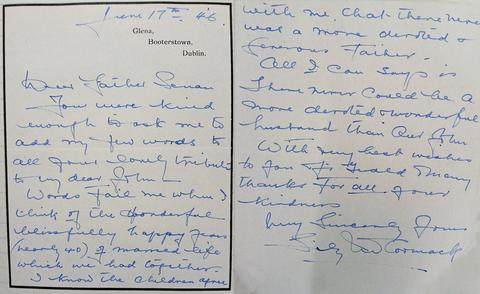 June 17th. 46.
Glena,
Booterstown,
Dublin.
Dear Father Senan
You were kind
enough to ask me to
add my few words to
all your lovely tribute
to my dear John.
Words fail me when I
think of the wonderful
blissfully happy years
(nearly 40) of married life
which we had together.
I know the children agree
with me, that there never
was a more devoted &
generous Father.
All I can say is
there never could be a
more devoted & wonderful
husband than our John
With very best wishes
to you Fr. Gerald & many
thanks for all your
kindness
Very Sincerely Yours
Lily McCormack